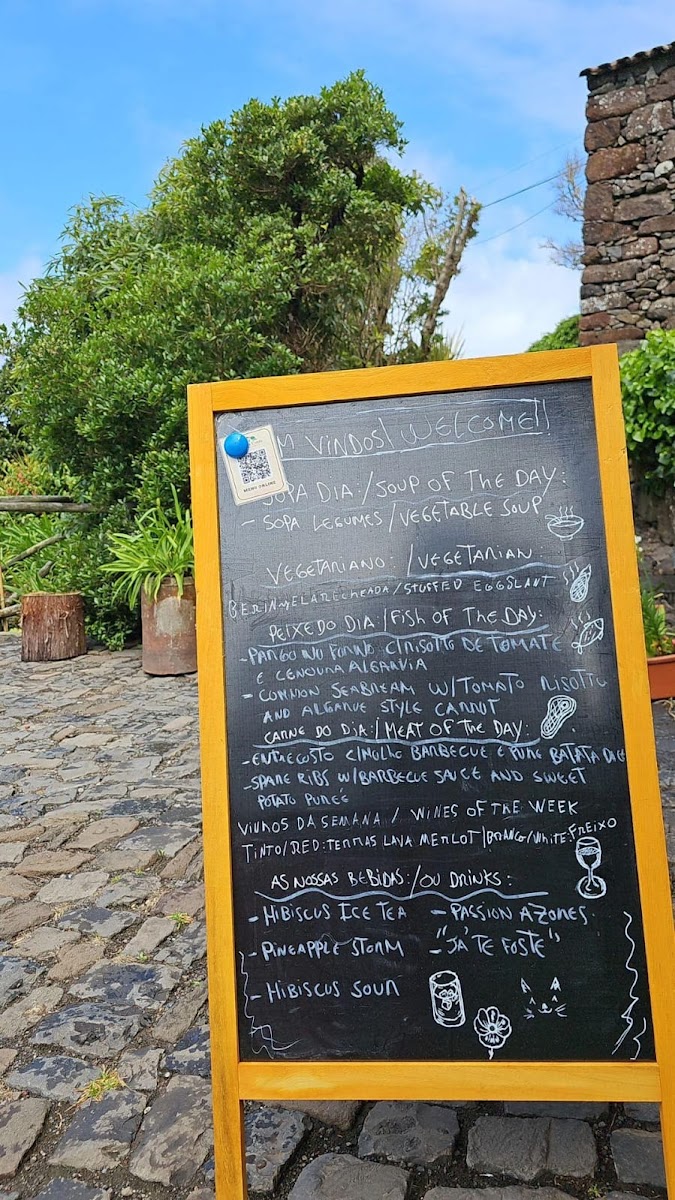 M VINDOS! WELCOME!!
MENU ONLINE
SOPA DIA:/SOUP OF THE DAY:
- SOPA LEGUMES / VEGETABLE SOUP
VEGETARIANO: / VEGETARIAN:
BERINGELA RECHEADA / STUFFED EGGSLANT
PEIXE DO DIA:/FISH OF THE DAY:
- PARGO NO FORNO C/RISOTTO DE TOMATE
E CENOURA ALGARVIA
- COMMON SEABREAM W/TOMATO RISOTTO
AND ALGARVE STYLE CARROT
CARNE DO DIA:/MEAT OF THE DAY:
- ENTRECOSTO C/MOLHO BARBECUE E PURE BATATA DOCE
- SPARE RIBS W/BARBECUE SAUCE AND SWEET
POTATO PUREÉ
VINHOS DA SEMANA / WINES OF THE WEEK
TINTO/RED: TERRAS LAVA MERLOT/BRANCO/WHITE: FREIXO
AS NOSSAS BEBIDAS:/OU DRINKS:
- HIBISCUS ICE TEA - PASSION AZORES
- PINEAPPLE STORM - "JÁ TE FOSTE"
- HIBISCUS SOUR